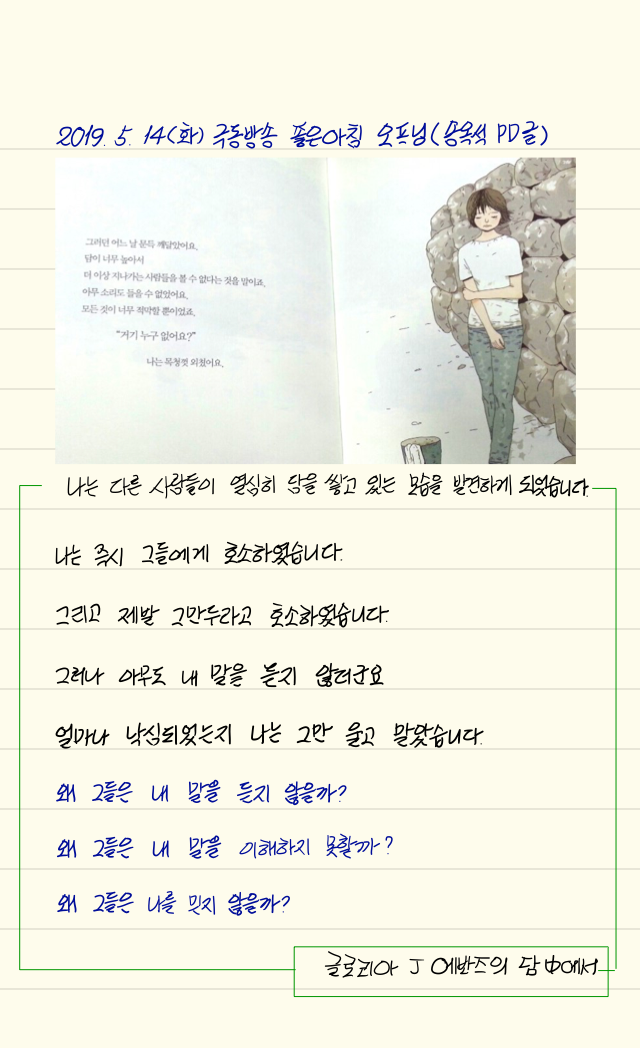 2019. 5. 14(화) 극동방송 좋은아침 오프닝(송옥석 PD글)
그러던 어느 날 문득 깨달았어요.
담이 너무 높아서
더 이상 지나가는 사람들을 볼 수 없다는 것을 말이죠.
아무 소리도 들을 수 없었어요.
모든 것이 너무 적막할 뿐이었죠.
“거기 누구 없어요?”
나는 목청껏 외쳤어요.
나는 다른 사람들이 열심히 담을 쌓고 있는 모습을 발견하게 되었습니다.
나는 즉시 그들에게 호소하였습니다.
그리고 제발 그만두라고 호소하였습니다.
그러나 아무도 내 말을 듣지 않더군요
얼마나 낙심되었는지 나는 그만 울고 말았습니다.
왜 그들은 내 말을 듣지 않을까?
왜 그들은 내 말을 이해하지 못할까?
왜 그들은 나를 믿지 않을까?
글로리아 J 에반즈의 담 中에서